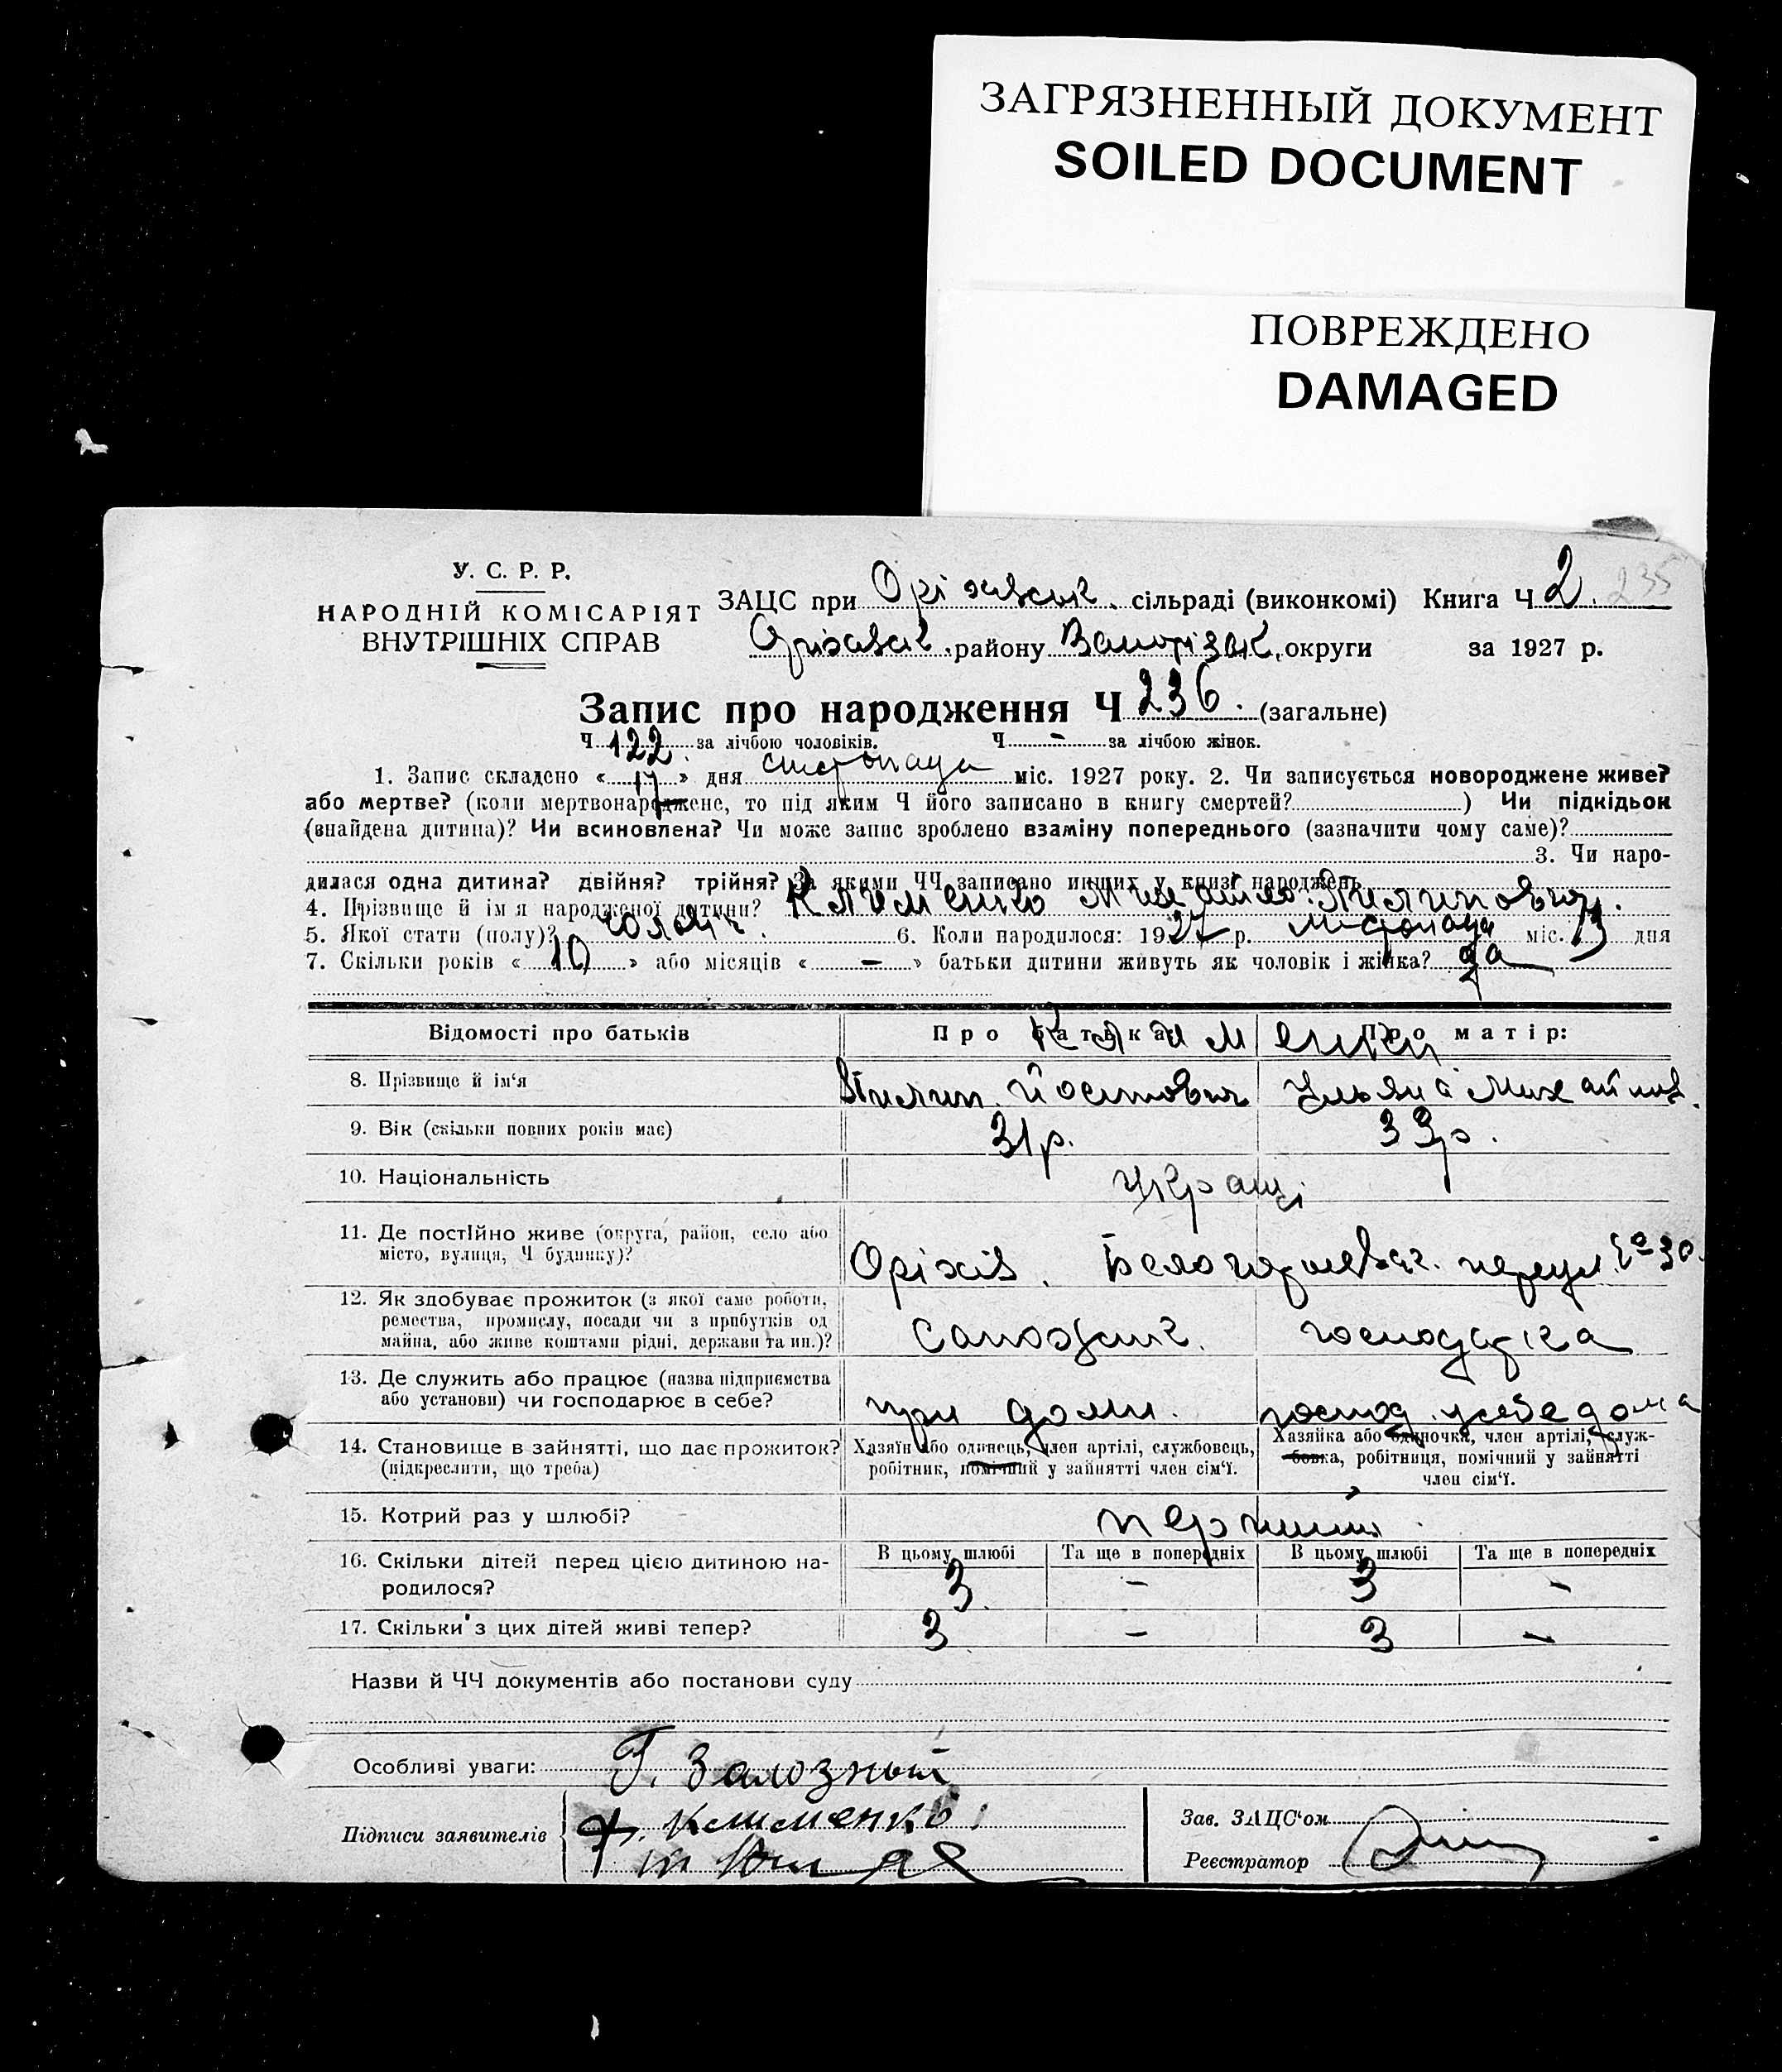 ЗАГРЯЗНЕННЫЙ ДОКУМЕНТ
SOILED DOCUMENT
ПОВРЕЖДЕНО
DAMAGED
У. С. Р. Р.
НАРОДНІЙ КОМІСАРІЯТ
ВНУТРІШНІХ СПРАВ
ЗАЦС при Оріхавськ. сільраді (виконкомі) Книга Ч 2. 235
Оріхавськ. району Запорізьк. округи за 1927 р.
Запис про народження Ч 236. (загальне)
Ч 122. за лічбою чоловіків. Ч - за лічбою жінок.
1. Запис складено « 17 » дня листопада міс. 1927 року. 2. Чи записується новороджене живе?
або мертве? (коли мертвонароджене, то під яким Ч його записано в книгу смертей? ) Чи підкідьок
(знайдена дитина)? Чи всиновлена? Чи може запис зроблено взаміну попереднього (зазначити чому саме)?
3. Чи наро-
дилася одна дитина? двійня? трійня? За якими ЧЧ записано инших у книзі народжень
4. Прізвище й ім я народженої дитини? Клименко Михайло Пилипович.
5. Якої стати (полу)? чоловіч. 6. Коли народилося: 1927 р. листопада міс. 13 дня
7. Скільки років « 10 » або місяців « — » батьки дитини живуть як чоловік і жінка? да
Відомості про батьків Про батька: Про матір:
Клименки
8. Прізвище й ім‘я Пилип Йосипович Ульяна Михайлов.
9. Вік (скільки повних років має) 31 р. 33 р.
10. Національність Українці
11. Де постійно живе (округа, район, село або
місто, вулиця, Ч будинку)? Оріхів. перул. № 30.
12. Як здобуває прожиток (з якої саме роботи,
ремества, промислу, посади чи з прибутків од
майна, або живе коштами рідні, держави та ин.)? Сапожник. господарка
13. Де служить або працює (назва підприємства
або установи) чи господарює в себе? при доми. господ. у себе дома
14. Становище в зайнятті, що дає прожиток? Хазяїн або одинець, член артілі, службовець, Хазяйка або одиночка, член артілі, служ-
(підкреслити, що треба) робітник, помічний у зайнятті член сім‘ї. бовка, робітниця, помічний у зайнятті
член сім‘ї.
15. Котрий раз у шлюбі? перший
16. Скільки дітей перед цією дитиною на- В цьому шлюбі Та ще в попередніх В цьому шлюбі Та ще в попередніх
родилося? 3 — 3 —
17. Скільки з цих дітей живі тепер? 3 — 3 —
Назви й ЧЧ документів або постанови суду
Особливі уваги: Г. Залозный
Підписи заявителів Клименко
Зав. ЗАЦС‘ом
Реєстратор